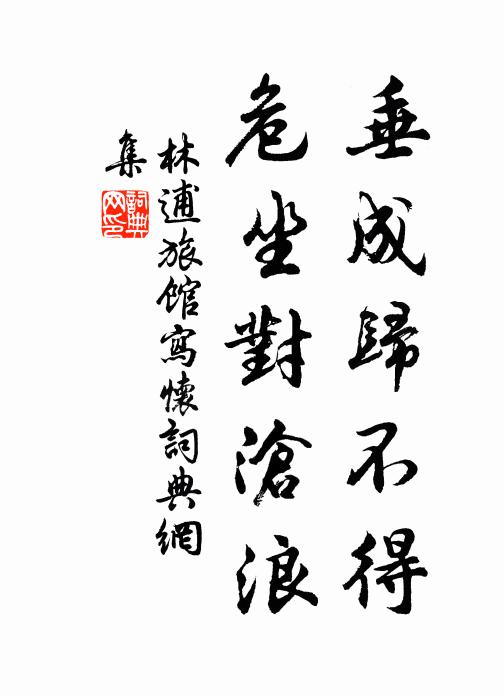 垂成歸不得
危坐對滄浪
林逋旅館寫懷詞典網
集
詞典
网印